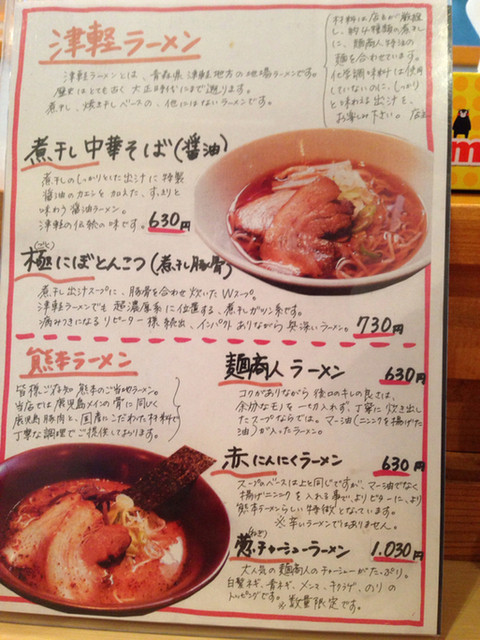 津軽ラーメン
津軽ラーメンとは、青森県津軽地方の地場ラーメンです。
歴史はとても古く大正時代にまで遡ります。
煮干し、焼き干しベースの、他にはないラーメンです。
材料は店主が厳選
し、約4種類の煮干し
に、麺商人特注の
麺を合わせています。
化学調味料は使用
していないのに、しっかり
と味わえる出汁を、
お楽しみ下さい。店主
煮干し中華そば(醤油)
煮干しのしっかりとした出汁に特製
醤油のカエシを加えた、すっきりと
味わう醤油ラーメン。
津軽の伝統の味です。630円
極にぼとんこつ(煮干し豚骨)
(ごく)
煮干し出汁スープに、豚骨を合わせ炊いたWスープ。
津軽ラーメンでも超濃厚系に位置する、煮干しガツン系です。
病みつきになるリピーター様続出、インパクトありながら奥深いラーメン。730円
熊本ラーメン
皆様ご存知熊本のご当地ラーメン。
当店では鹿児島メインの骨に同じく
鹿児島豚肉と、国産にこだわった材料で
丁寧な調理でご提供しております。
麺商人ラーメン 630円
コクがありながら後口のキレの良さは、
余分なモノを一切入れず、丁寧に炊き出し
たスープならでは。マー油(ニンニクを揚げた
油)が入ったラーメン。
赤にんにくラーメン 630円
スープのベースは上と同じですが、マー油でなく
揚げニンニクを入れる事で、よりビターに、より
熊本ラーメンらしい特徴となっています。
※辛いラーメンではありません。
葱チャーシューラーメン 1.030円
(ねぎ)
大人気の麺商人のチャーシューがたっぷり。
白髪ネギ、青ネギ、メンマ、キクラゲ、のりの
トッピングです。※数量限定です。